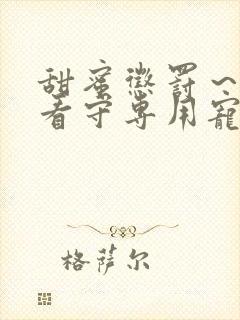 甜蜜惩罚～
看守专用宠
格萨尔